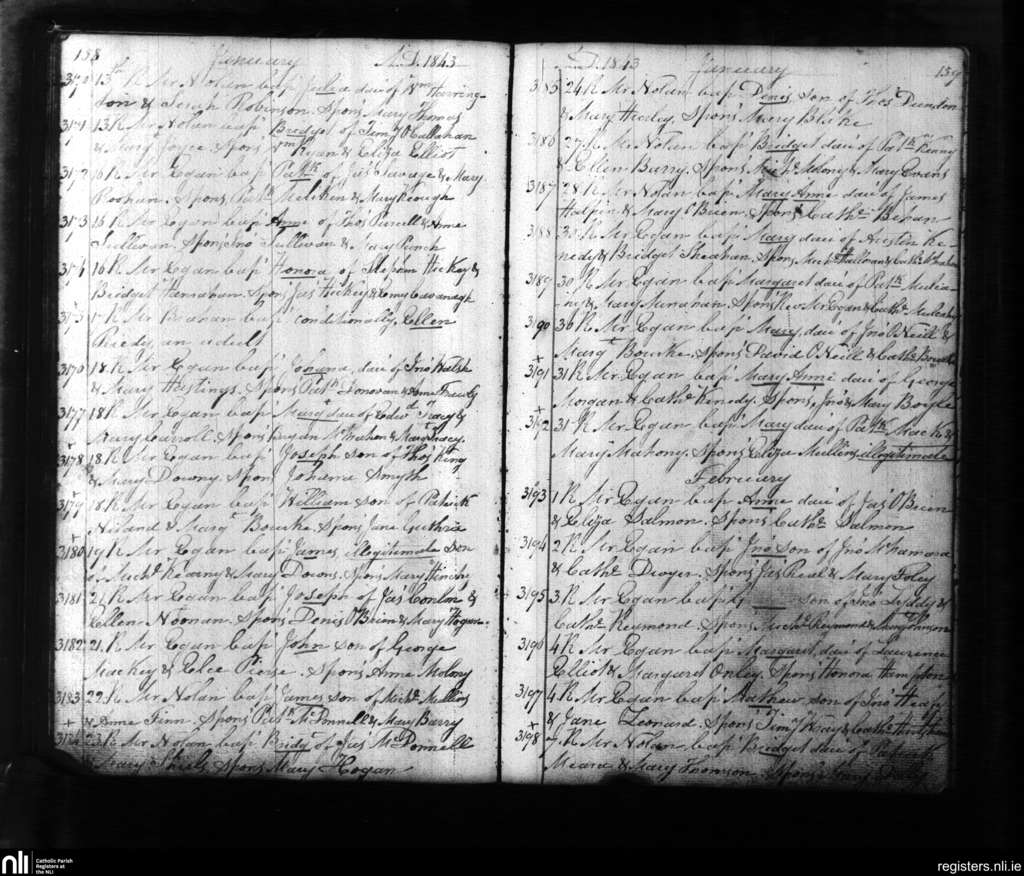 158 January A.D. 1843
13th R Mr Nolan bapd Julia daur of Wm Harring-
ton & Sarah Robinson Spons Mary Thomas
3171 13 R Mr Nolan bapd Bridget of Timy O'Callahan
& Mary Joyce Spons Wm Ryan & Eliza Elliot
3172 16 R Mr Egan bapd Patk of Jas Savage & Mary
Spons Patk & Mary Keough
3173 16 R Mr Egan bapd Anne of Thos Purcell & Anne
Sullivan. Spons Jno Sullivan & Mary
3174 16 R Mr Egan bapd Honora of Stephen Hickey &
Bridget Hanrahan. Spons Jas Hickey & Cavanagh
R Mr bapd conditionally Ellen
an adult
3176 18 R Mr Egan bapd Johana daur of Jno Walsh
& Mary Hastings. Spons Patk Donovan &
3177 18 R Mr Egan bapd Margt daur of Edwd Tracy &
Mary Carroll. Spons McMahon & Mary Tracy
3178 18 R Mr Egan bapd Joseph son of Thos King
& Mary Downy. Spons Johanna Smyth
3179 18 R Mr Egan bapd William son of Patrick
& Margt Bourke. Spons Jane Guthrie
3180 19 R Mr Egan bapd James illegitimate Son
of Michl Kearny & Mary Downs. Spons Mary
3181 21 R Mr Egan bapd Joseph of Jas Conlon &
Ellen Noonan. Spons Denis O'Brien & Mary Hogan
3182 21 R Mr Egan bapd John son of George
Mackey & . Spons Anne Molony
3183 22 R Mr Nolan bapd James son of Michl Mullins
& Anne Finn. Spons Patk McDonnell & Mary Barry
3184 23 R Mr Nolan bapd Bridgt of Jas McDonnell
& Mary Shiels Spons Mary Hogan
A.D. 1843 January 159
3185 24 R Mr Nolan bapd Denis son of Thos Dundon
& Mary Spons Mary Blake
3186 27 R Mr Nolan bapd Bridget daur of Patk Keany
& Ellen Barry. Spons Michl Molony & Mary Evans
3187 28 R Mr Nolan bapd Mary Anne daur of James
Halpin & Mary O'Brien Spons Cathe Bevan
3188 R Mr Egan bapd Mary daur of Austin Ke-
nedy & Bridget Sheahan. Spons Michl &
3189 30 R Mr Egan bapd Margaret daur of Patk
& Mary Minahan. Spons Rev Mr Egan & Cathe
3190 30 R Mr Egan bapd Mary daur of Jno O'Neill &
Margt Bourke. Spons David O'Neill & Cathe Bourke
3191 31 R Mr Egan bapd Mary Anne daur of George
Morgan & Cathe Kenedy. Spons Jno & Mary Boyle
3192 31 R Mr Egan bapd Mary daur of Patk &
Mary Mahony. Spons Eliza Mullins illegitimate
February
3193 1 R Mr Egan bapd Anne daur of Jas O'Brien
& Eliza Salmon. Spons Cathe Salmon
3194 2 R Mr Egan bapd Jno son of Jno McNamara
& Cathe Dwyer. Spons Jas Real & Mary Foley
3195 3 R Mr Egan bapd son of Jno Liddy &
Cathe Reymond. Spons Michl Reymond &
3196 4 R Mr Egan bapd Margaret daur of Lawrence
Elliot & Margaret Onley. Spons Honora Hampton
3197 4 R Mr Egan bapd Mathew son of Jno Heafy
& Jane Leonard. Spons Timy &
3198 7 R Mr Nolan bapd Bridget daur of Patrick
Meara & Mary Thomson. Spons Mary
nli
Catholic Parish
Registers at
the NLI
registers.nli.ie